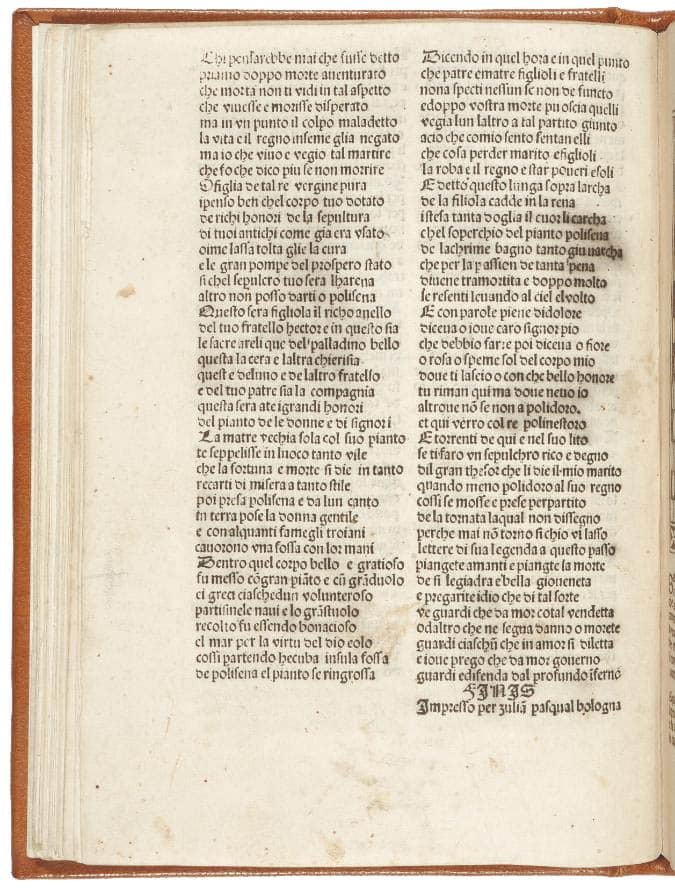 Chi pensarebbe mai che fusse detto
priamo doppo morte auenturato
che morta non ti vidi in tal aspetto
che viuesse e morisse disperato
ma in vn punto il colpo maladetto
la vita e il regno inseme glia negato
ma io che viuo e vegio tal martire
che fo che dico piu se non morrire
O figlia de tal re vergine pura
ipenso ben chel corpo tuo dotato
de richi honori de la sepultura
di tuoi antichi come gia era vsato
oime lassa tolta glie la cura
e le gran pompe del prospero stato
si chel sepulcro tuo sera lharena
altro non posso darti o polisena
Questo sera figliola il richo anello
del tuo fratello hector e in questo sia
le sacre areli que del palladino bello
questa la cera e laltra chierisia
quest e deluno e de laltro fratello
e del tuo patre sia la compagnia
questa sera ate igrandi honori
del pianto de le donne e di signori
La matre vechia sola col suo pianto
te seppelisse in luoco tanto vile
che la fortuna e morte si die in tanto
recarti di misera a tanto stile
poi presa polisena e da lun canto
in terra pose la donna gentile
e con alquanti famegli troiani
cauorono vna fossa con lor mani
Dentro quel corpo bello e gratioso
fu messo cō gran piāto e cū grāduolo
ei greci ciaschedun volunteroso
partisinele naui e lo grāstuolo
recolto fu essendo bonacioso
el mar per la virtu del dio eolo
cossi partendo hecuba insula fossa
de polisena el pianto se ringrossa
Dicendo in quel hora e in quel punto
che patre ematre figlioli e fratelli
nona specti nessun se non de functo
edoppo vostra morte pu oscia quelli
vegia lun laltro a tal partito giunto
acio che comio sento sentan elli
che cosa perder marito efiglioli
la roba e il regno e star poueri esoli
E detto questo lunga sopra larcha
de la filiola cadde in la rena
istesa tanta doglia il cuor li carcha
chel soperchio del pianto polisena
de lachrime bagno tanto giu uarcha
che per la p assion de tanta pena
diuene tramortita e doppo molto
se resenti leuando al ciel eluolto
E con parole piene didolore
diceua o ioue caro signor pio
che debbio farre poi diceua o fiore
o rosa o speme sol del corpo mio
doue ti lascio o con che bello honore
tu riman qui ma doue neuo io
altroue nō se non a polidoro.
et qui verro col re polinestoro
E torrenti de qui e nel suo lito
se ti faro vn sepulchro rico e degno
dil gran thesor che li die il mio marito
quando meno polidoro al suo regno
cossi se mosse e prese perpartito
de la tornata laqual non dissegno
perche mai nō torno si chio vi lasso
lettere di sua legenda a questo passo
piangete amanti e piangte la morte
de si legiadra e bella gioueneta
e pregarite idio che di tal sorte
ve guardi che da mor cotal vendetta
odaltro che ne segua danno o morete
guardi ciaschū che in amor si diletta
e ioue prego che da mor gouerno
guardi edifenda dal profundo ĩferno
FINIS
Impresso per zuliā pasqual bologna